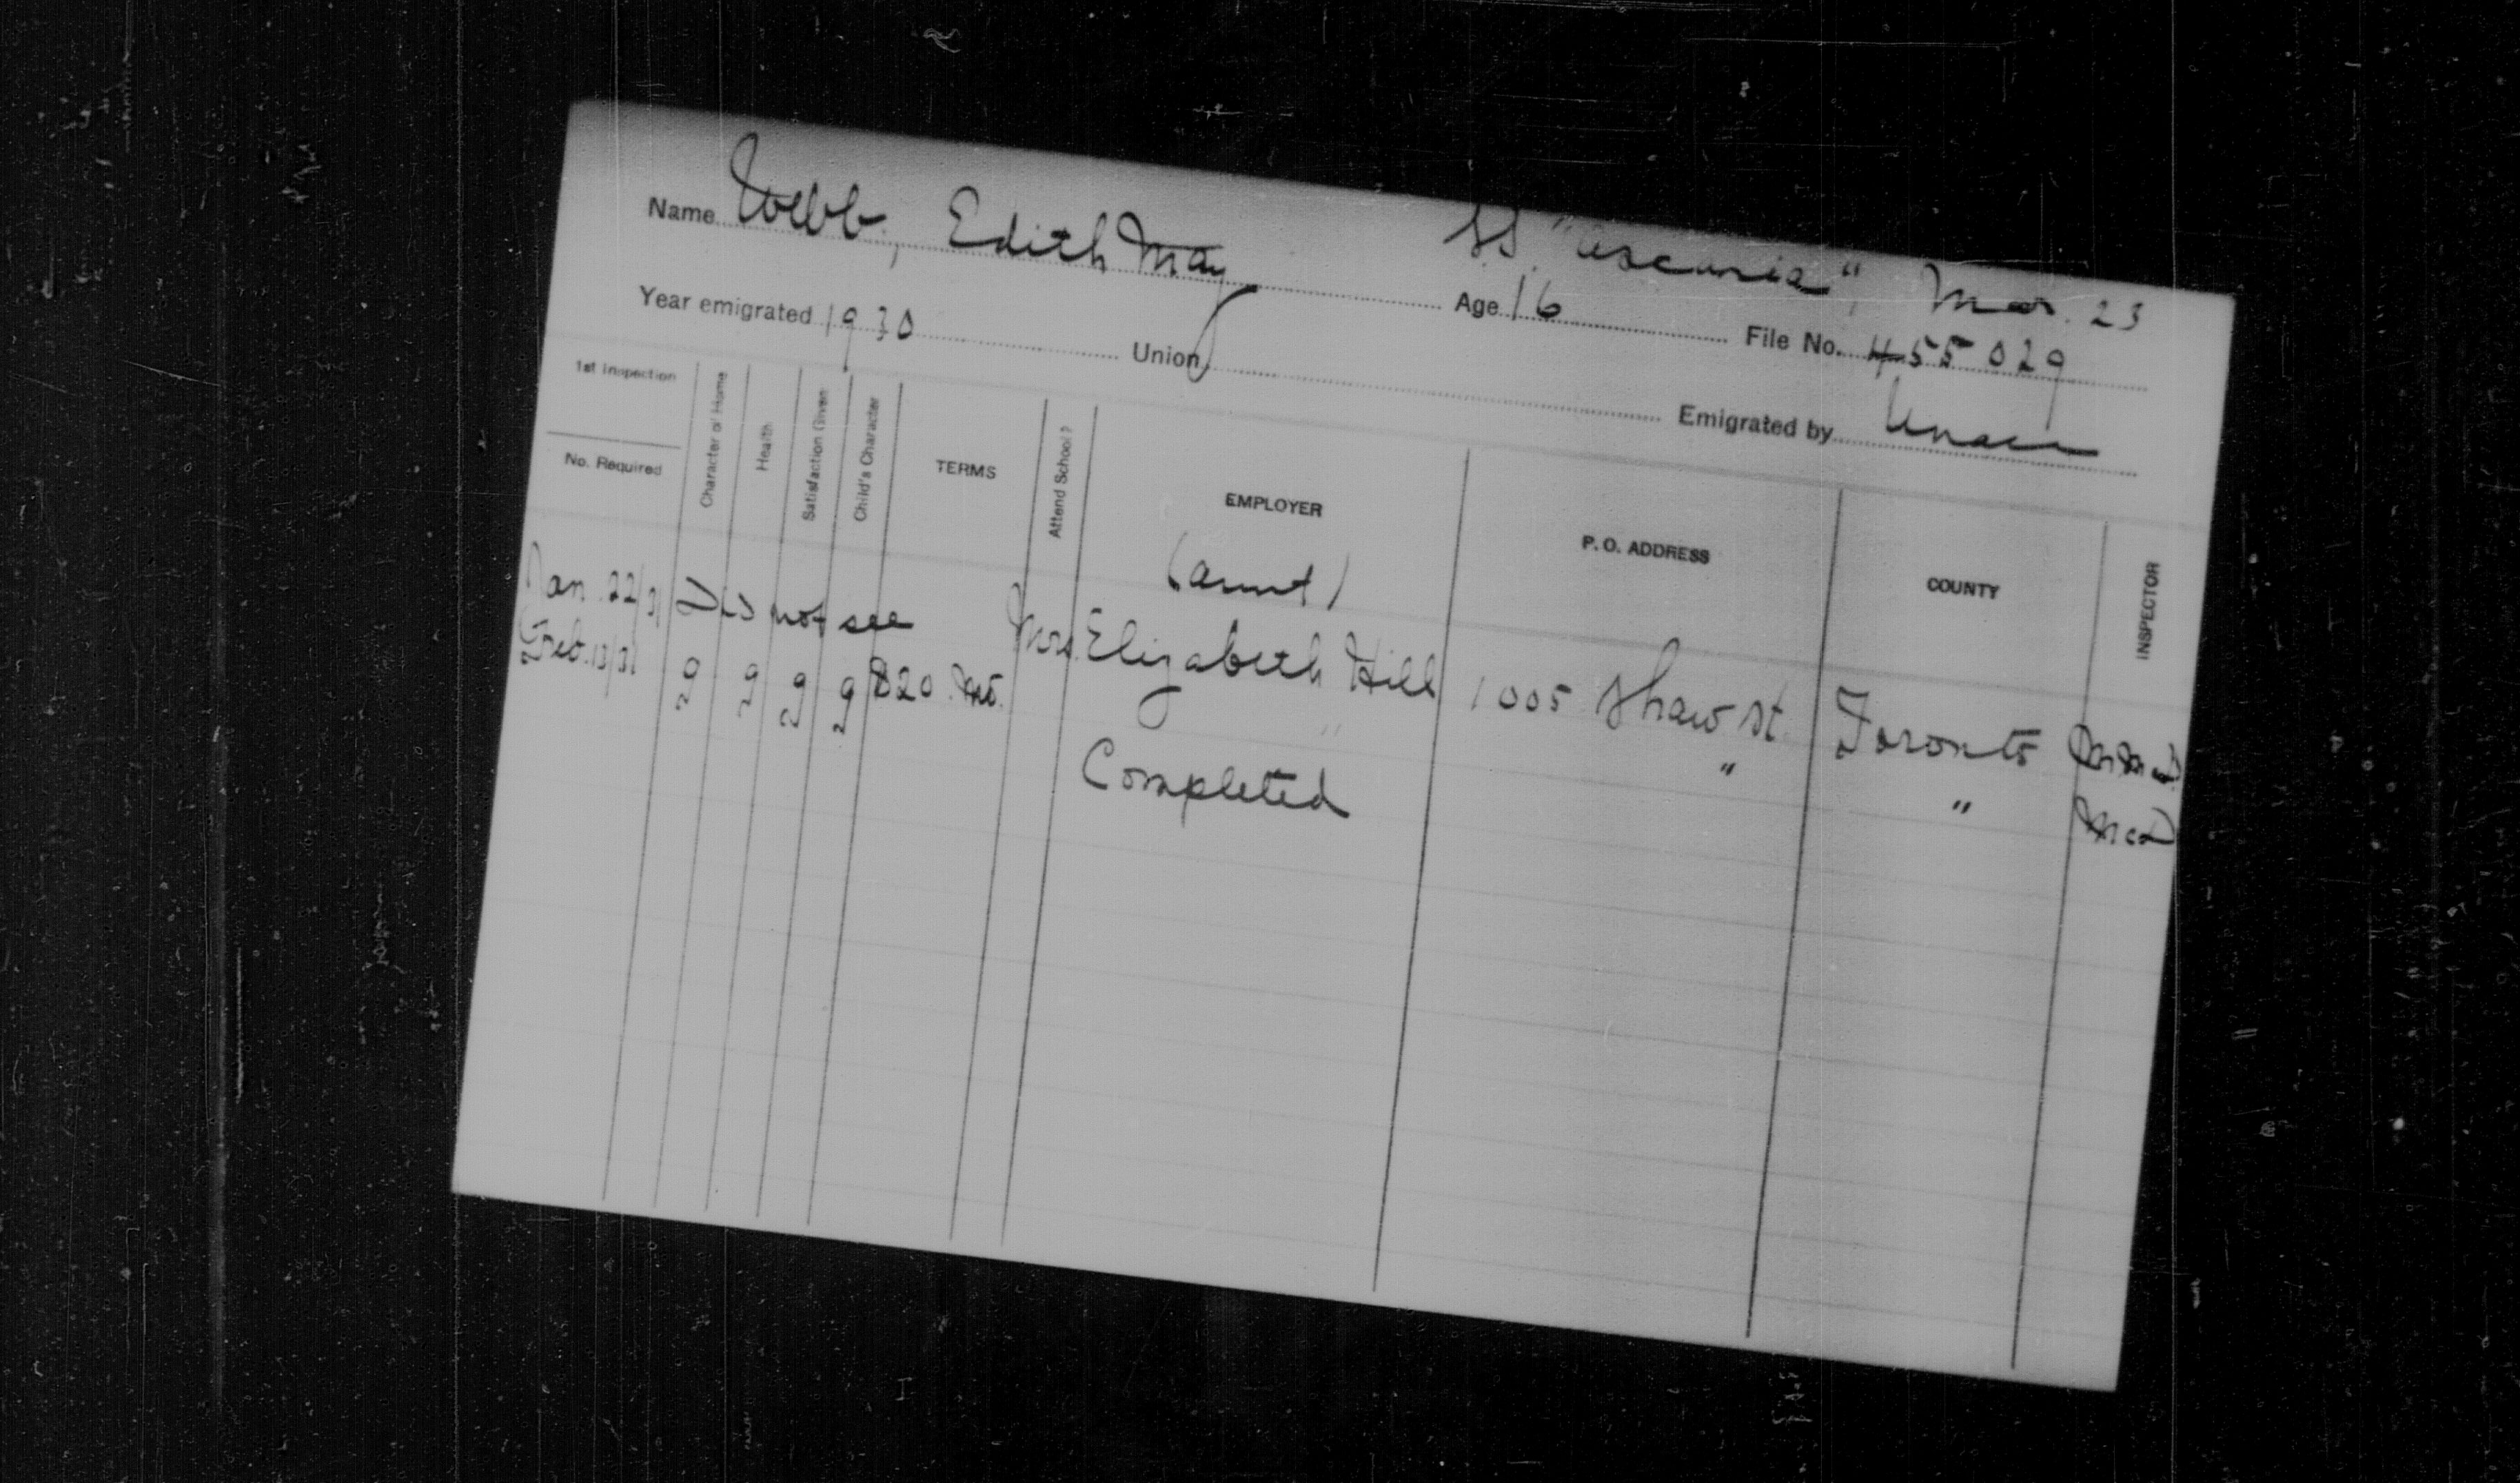 SS "Ascania", Mar. 23
Name Webb, Edith May Age 16 File No. 455029
Year emigrated 1930 Union Emigrated by
1st Inspection
No. Required
Character of Home
Health
Satisfaction Given
Child's Character
TERMS
Attend School?
EMPLOYER
P. O. ADDRESS
COUNTY
INSPECTOR
(aunt)
Jan. 22/31 Did not see Mrs. Elizabeth Hill 1005 Shaw St. Toronto
Feb. 13/31 g g g g $20 mo. " " " McD
Completed